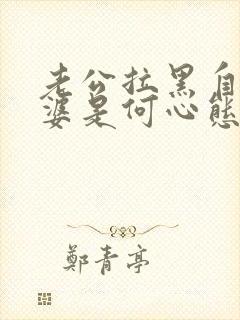 老公拉黑自
婆是何心態
鄭青亭